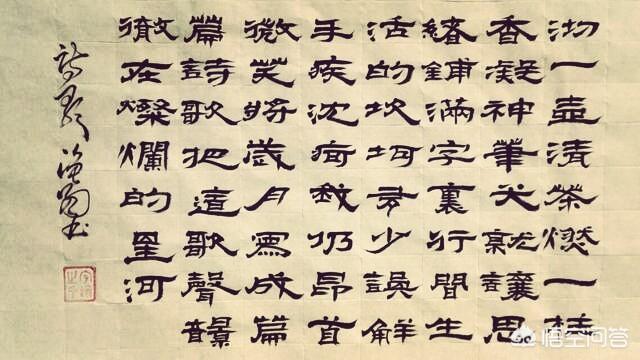 沏一壺清茶燃一炷
香凝神筆尖就讓思
緒鋪滿字裏行間生
活的坎坷多少誤解
手疾沈疴我仍昂首
微笑將歲月寫成篇
篇詩歌把這歌聲響
徹在燦爛的星河
悟空问答